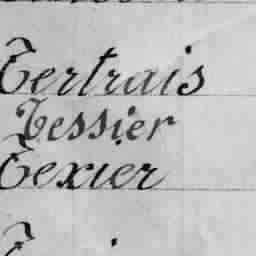 Tertrais
Tessier
Texier